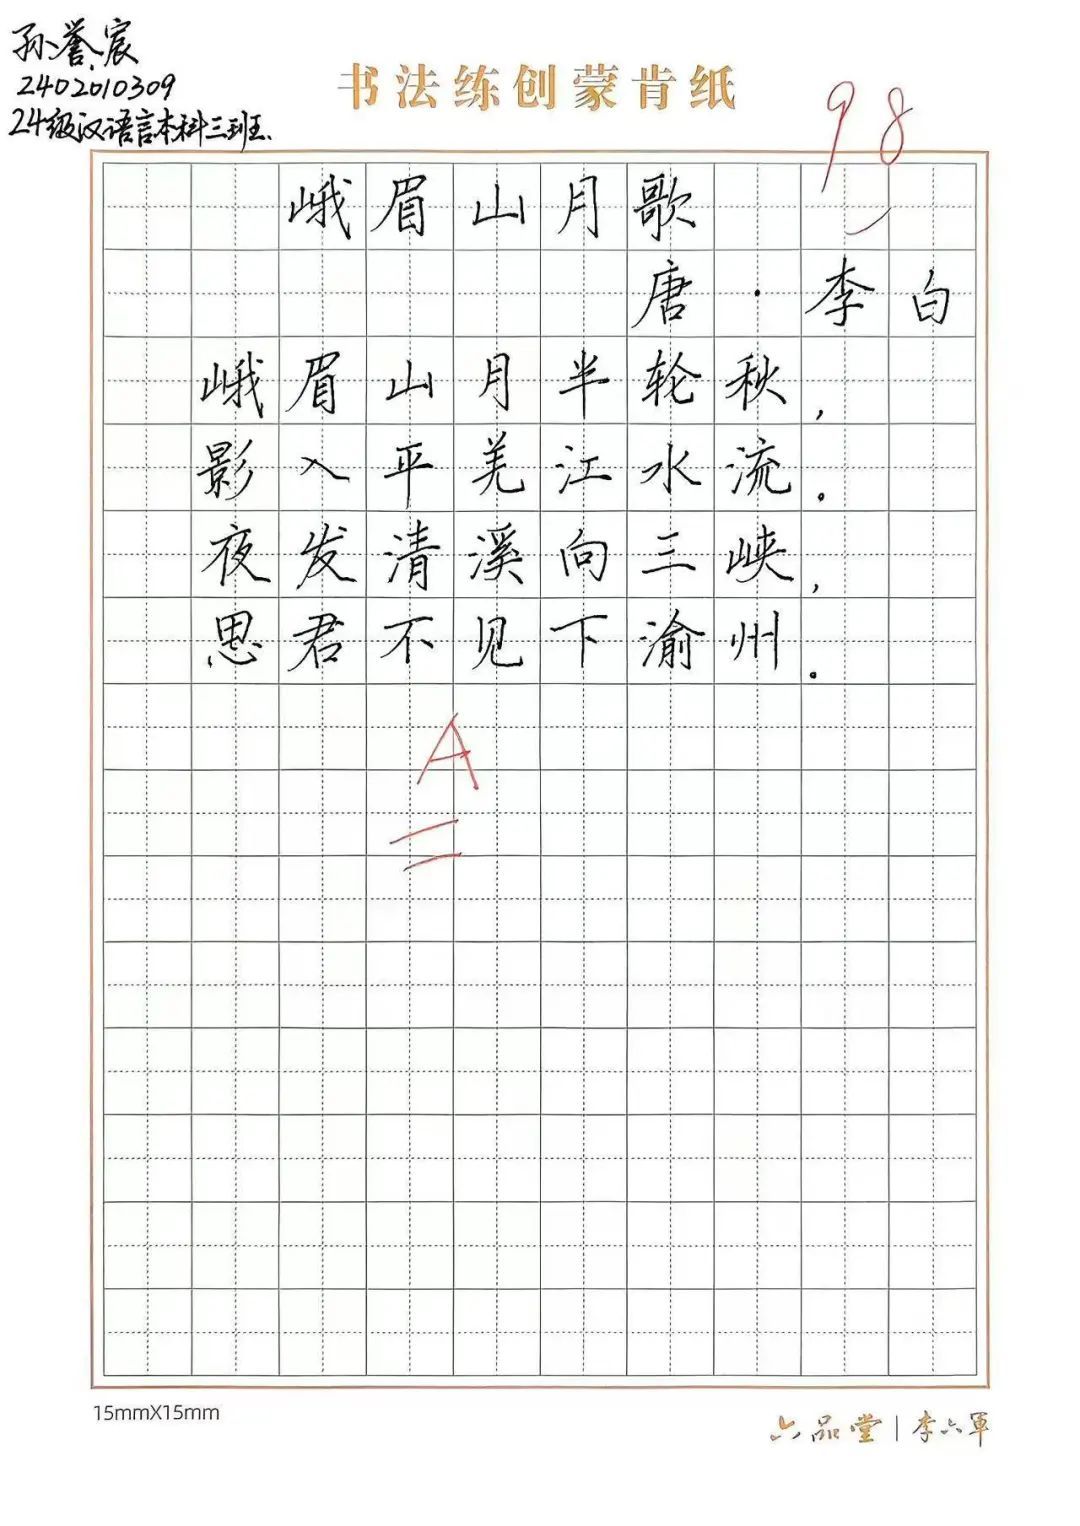 孙誉宸
2402010309
24级汉语言本科三班.
书法练创蒙肯纸
98
峨眉山月歌
唐·李白
峨眉山月半轮秋,
影入平羌江水流。
夜发清溪向三峡,
思君不见下渝州。
A
15mmX15mm
六品堂|李六军